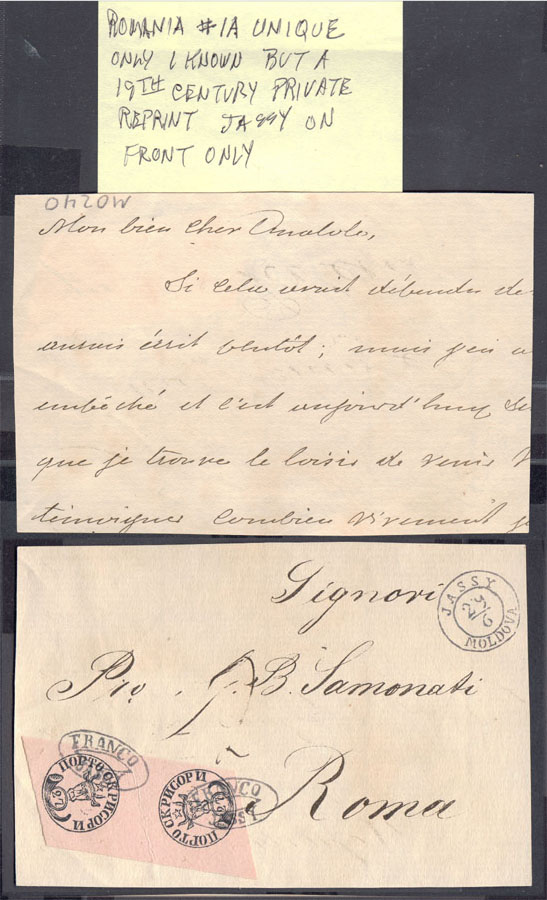 ROMANIA #1A UNIQUE
ONLY 1 KNOWN BUT A
19TH CENTURY PRIVATE
REPRINT JASSY ON
FRONT ONLY
MO240
Mon bien cher Anatole,
Si cela avait dépendu de
aurais écrit plutôt; mais j'en a
empêché et c'est aujourd'huy
que je trouve le loisir de venir
témoigner combien vivement
Signori
JASSY
29/6
MOLDOVA
Pio . B. Samonati
à
Roma
FRANCO
ПОРТО СКРИСОРИ
27
FRANCO
ПОРТО СКРИСОРИ
27